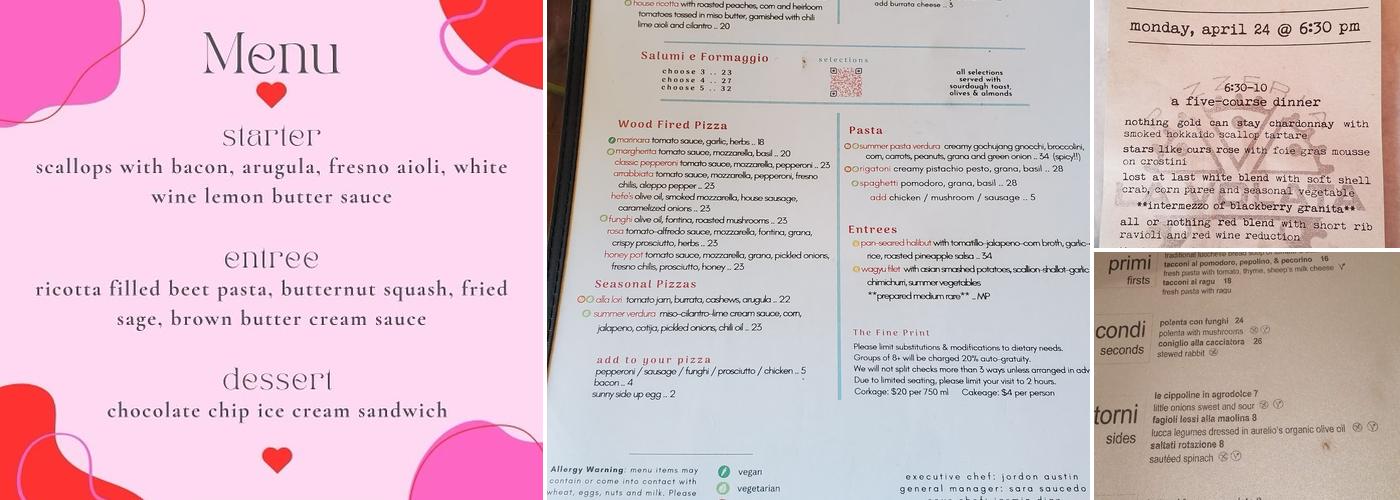 Menu
starter
scallops with bacon, arugula, fresno aioli, white
wine lemon butter sauce
entree
ricotta filled beet pasta, butternut squash, fried
sage, brown butter cream sauce
dessert
chocolate chip ice cream sandwich
house ricotta with roasted peaches, corn and heirloom
tomatoes tossed in miso butter, garnished with chili
lime aioli and cilantro .. 20
add burrata cheese .. 3
Salumi e Formaggio
choose 3 .. 23
choose 4 .. 27
choose 5 .. 32
selections
all selections
served with
sourdough toast,
olives & almonds
Wood Fired Pizza
marinara tomato sauce, garlic, herbs .. 18
margherita tomato sauce, mozzarella, basil .. 20
classic pepperoni tomato sauce, mozzarella, pepperoni .. 23
arrabbiata tomato sauce, mozzarella, pepperoni, fresno
chilis, aleppo pepper .. 23
hefe's olive oil, smoked mozzarella, house sausage,
caramelized onions .. 23
funghi olive oil, fontina, roasted mushrooms .. 23
rosa tomato-alfredo sauce, mozzarella, fontina, grana,
crispy prosciutto, herbs .. 23
honey pot tomato sauce, mozzarella, grana, pickled onions,
fresno chilis, prosciutto, honey .. 23
Seasonal Pizzas
alla lori tomato jam, burrata, cashews, arugula .. 22
summer verdura miso-cilantro-lime cream sauce, corn,
jalapeno, cotija, pickled onions, chili oil .. 23
add to your pizza
pepperoni / sausage / funghi / prosciutto / chicken .. 5
bacon .. 4
sunny side up egg .. 2
Pasta
summer pasta verdura creamy gochujang gnocchi, broccolini,
corn, carrots, peanuts, grana and green onion .. 34 (spicy!!)
rigatoni creamy pistachio pesto, grana, basil .. 28
spaghetti pomodoro, grana, basil .. 28
add chicken / mushroom / sausage .. 5
Entrees
pan-seared halibut with tomatillo-jalapeno-corn broth, garlic-
rice, roasted pineapple salsa .. 34
wagyu filet with asian smashed potatoes, scallion-shallot-garlic
chimichurri, summer vegetables
**prepared medium rare** .. MP
The Fine Print
Please limit substitutions & modifications to dietary needs.
Groups of 8+ will be charged 20% auto-gratuity.
We will not split checks more than 3 ways unless arranged in adv
Due to limited seating, please limit your visit to 2 hours.
Corkage: $20 per 750 ml Cakeage: $4 per person
Allergy Warning: menu items may
contain or come into contact with
wheat, eggs, nuts and milk. Please
vegan
vegetarian
executive chef: jordon austin
general manager: sara saucedo
monday, april 24 @ 6:30 pm
6:30-10
a five-course dinner
nothing gold can stay chardonnay with
smoked hokkaido scallop tartare
stars like ours rose with foie gras mousse
on crostini
lost at last white blend with soft shell
crab, corn puree and seasonal vegetable
**intermezzo of blackberry granita**
all or nothing red blend with short rib
ravioli and red wine reduction
LA VOLATA
primi
firsts
tacconi al pomodoro, pepolino, & pecorino 16
fresh pasta with tomato, thyme, sheep's milk cheese
tacconi al ragu 18
fresh pasta with ragu
condi
seconds
polenta con funghi 24
polenta with mushrooms
coniglio alla cacciatora 26
stewed rabbit
torni
sides
le cippoline in agrodolce 7
little onions sweet and sour
fagioli lessi alla maolina 8
lucca legumes dressed in aurelio's organic olive oil
saltati rotazione 8
sautéed spinach